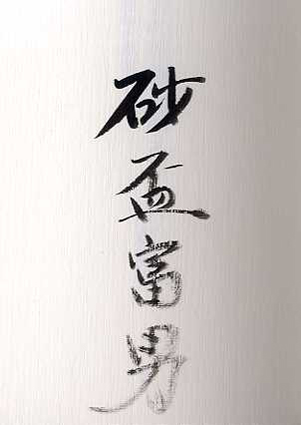 砂盃富男